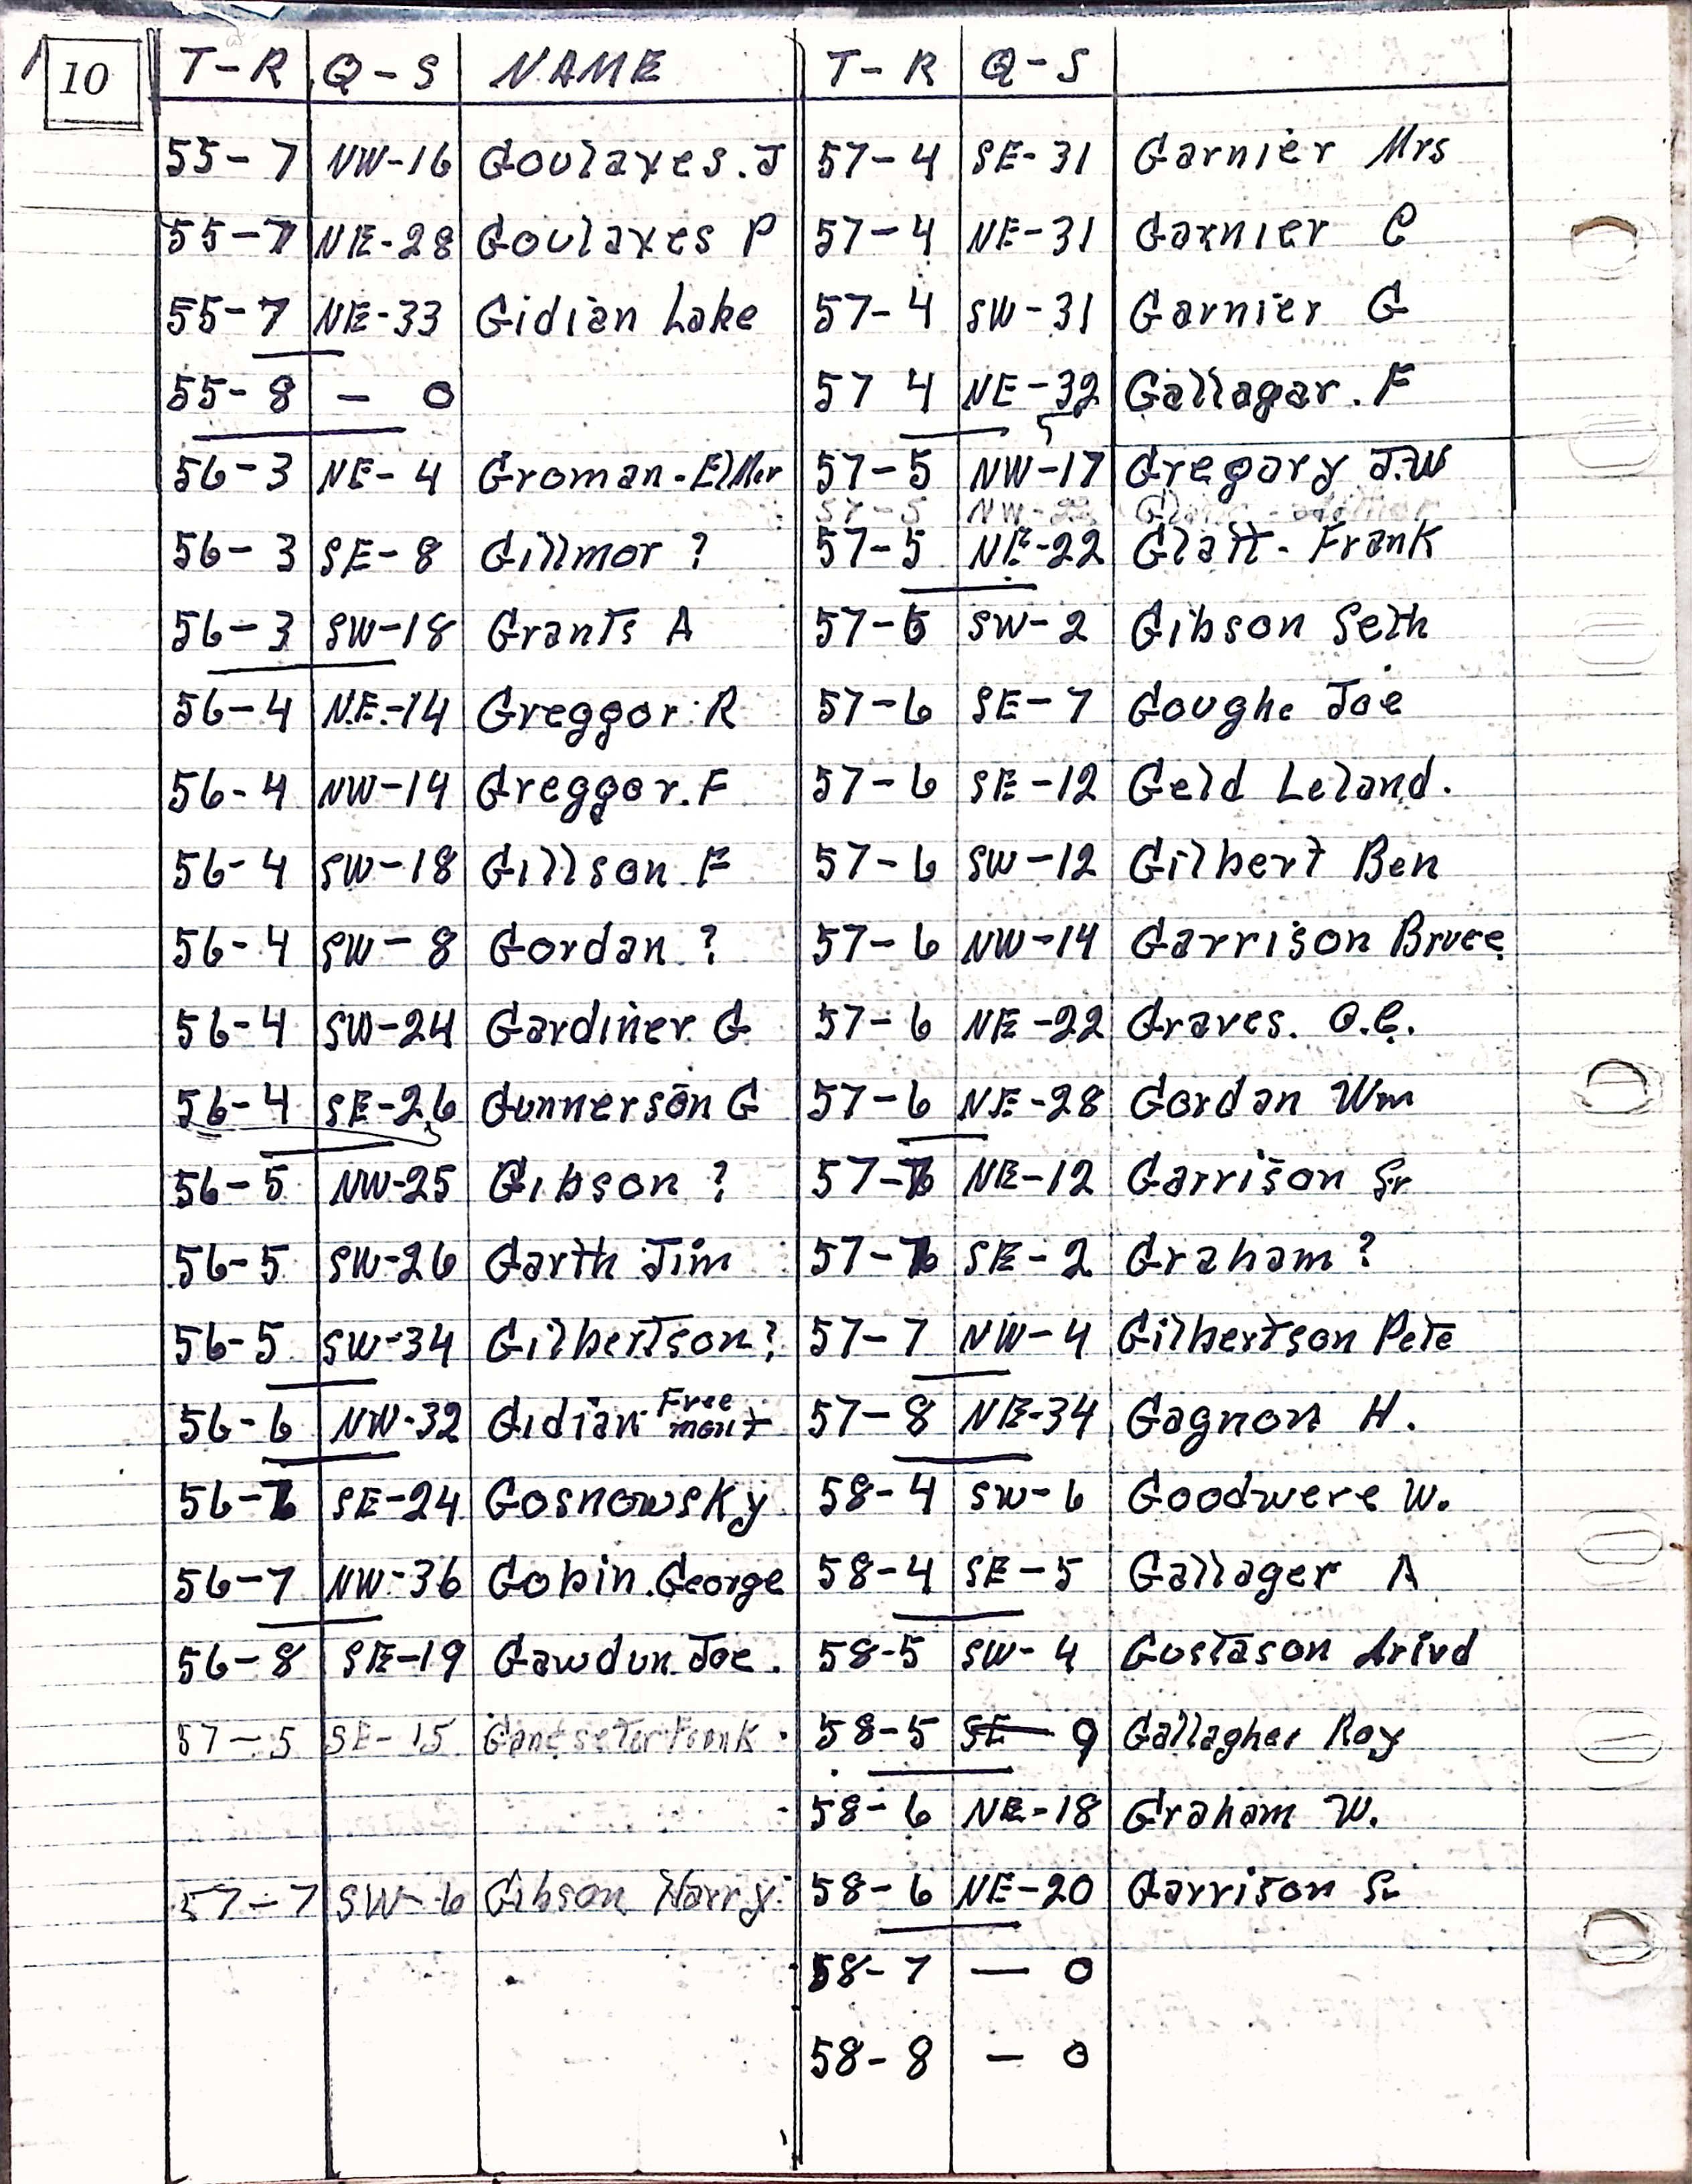 10
T-R Q-S NAME
55-7 NW-16 Goulaxes. J
55-7 NE-28 Goulaxes P
55-7 NE-33 Gidian Lake
55-8 - 0
56-3 NE-4 Groman-Elmer
56-3 SE-8 Gillmor ?
56-3 SW-18 Grants A
56-4 N.E.-14 Greggor R
56-4 NW-14 Greggor. F
56-4 SW-18 Gillson. F
56-4 SW-8 Gordan. ?
56-4 SW-24 Gardiner. G
56-4 SE-26 Gunnerson G
56-5 NW-25 Gibson ?
56-5 SW-26 Garth Jim
56-5 SW-34 Gilbertson?
56-6 NW-32 Gidian Freemont
56-7 SE-24 Gosnowsky
56-7 NW-36 Gobin. George
56-8 SE-19 Gawdun Joe.
57-5 SE-15
57-7 SW-6 Gibson Harry
T-R Q-S
57-4 SE-31 Garnier Mrs
57-4 NE-31 Garnier C
57-4 SW-31 Garnier G
57 4 NE-32 Gallagar. F
57-5 NW-17 Gregary J.W
57-5 NW-22
57-5 NE-22 Glatt- Frank
57-6 SW-2 Gibson Seth
57-6 SE-7 Goughe Joe
57-6 SE-12 Geld Leland.
57-6 SW-12 Gilbert Ben
57-6 NW-14 Garrison Bruce
57-6 NE-22 Graves. O.C.
57-6 NE-28 Gordan Wm
57-7 NE-12 Garrison Sr
57-7 SE-2 Graham ?
57-7 NW-4 Gilbertson Pete
57-8 NE-34 Gagnon H.
58-4 SW-6 Goodwere W.
58-4 SE-5 Gallager A
58-5 SW-4 Gostason Arivd
58-5 SE-9 Gallagher Roy
58-6 NE-18 Graham W.
58-6 NE-20 Garrison Sr
58-7 - 0
58-8 - 0